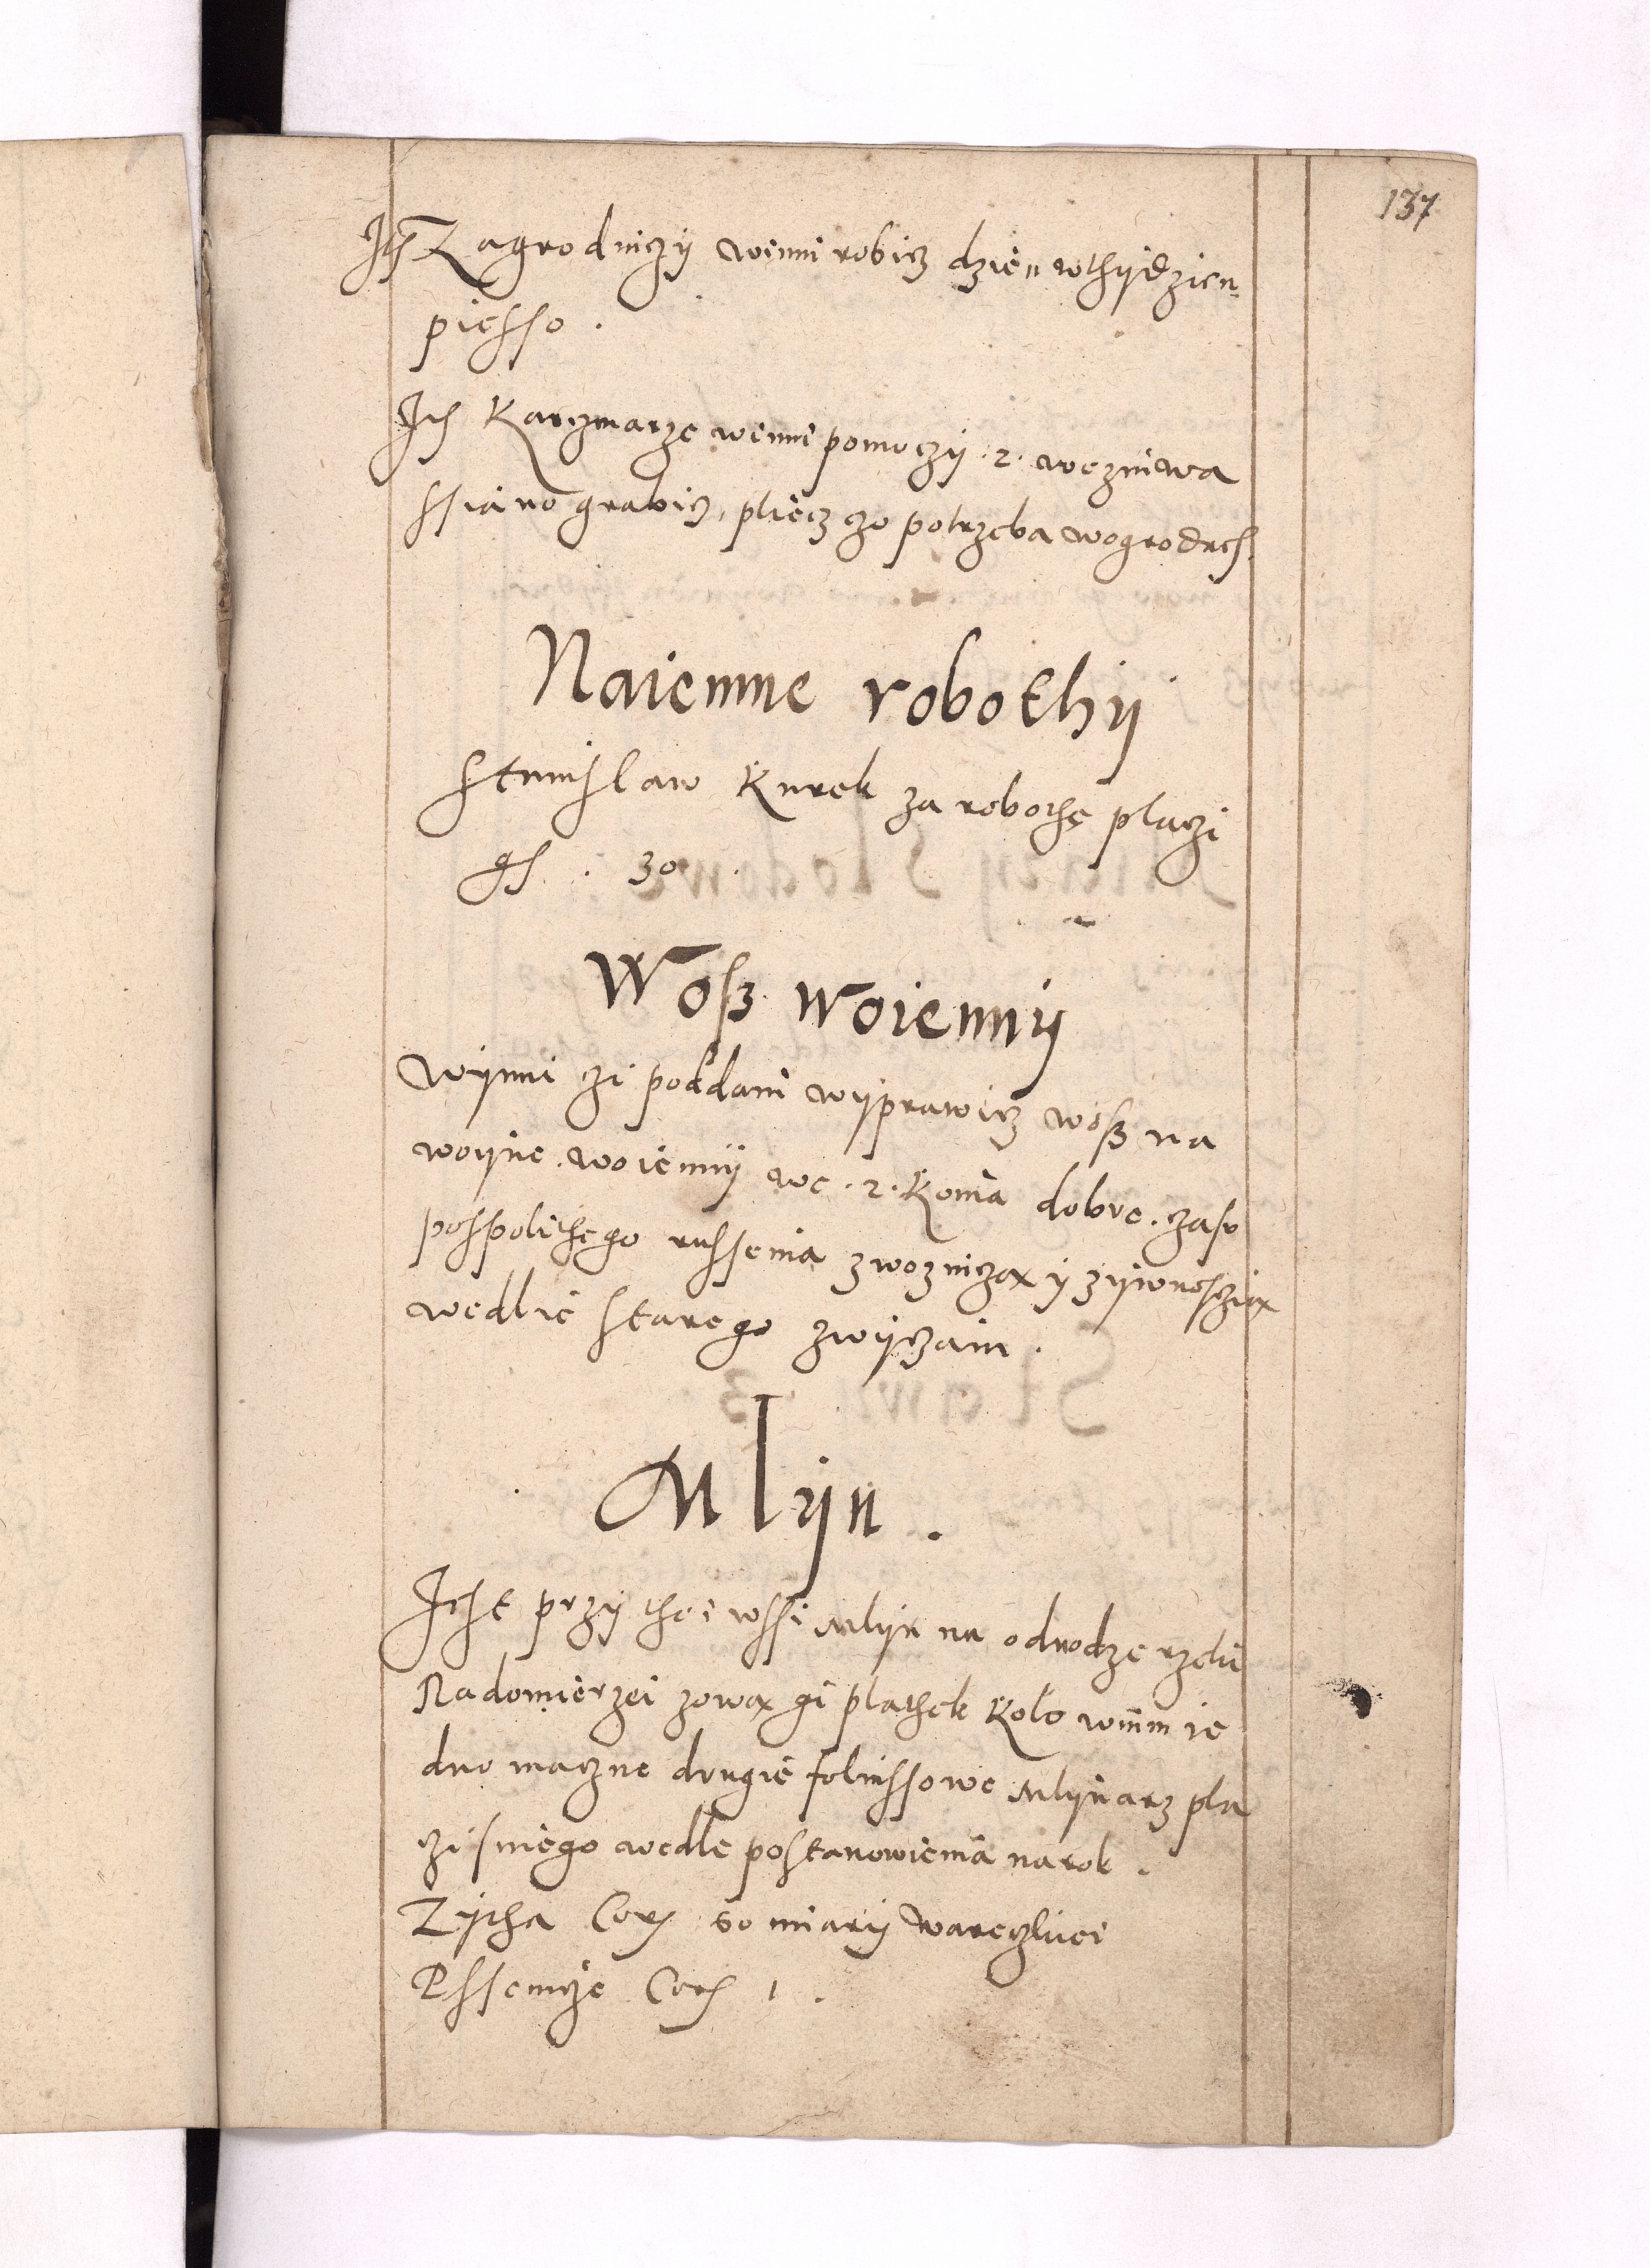 137
Ite(m) Zagrodniczÿ winni robicz dzien wthÿdzien
piesso.
Ite(m) Karczmarze winni pomoczÿ .2. weznïwa
ssiano grabicz, pliecz czo potrzeba wogrodech.
Naiemne robothÿ
Stanislaw Kurek za robothę placzi
gs. 30.
Wosz woiennÿ
Wÿnni czi poddani wÿprawicz wosz na
woÿne. woiennÿ we .2. Konia dobre. czasu
pospolithego russenia zwozniczą ÿ zÿwnoscią
wedlie starego zwÿczaiu.
Mlÿn.
Jest przÿ thei wssi Mlÿn na odnodze rzeki
Nadomierzei zową gi plathek kolo w nim ie
dno maczne drugie foliussowe Mlÿnarz pla
czi sniego wedle postanowienia na rok.
Zÿtha Cor(s) 60 miarÿ wareczkiei
Pssenice Cor(s) 1.